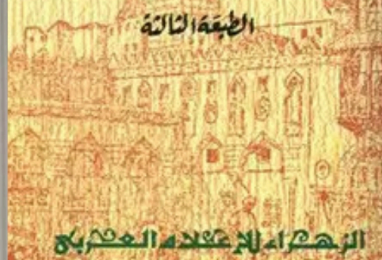 الطبعة الثالثة
الزهراء للإعلام العربى